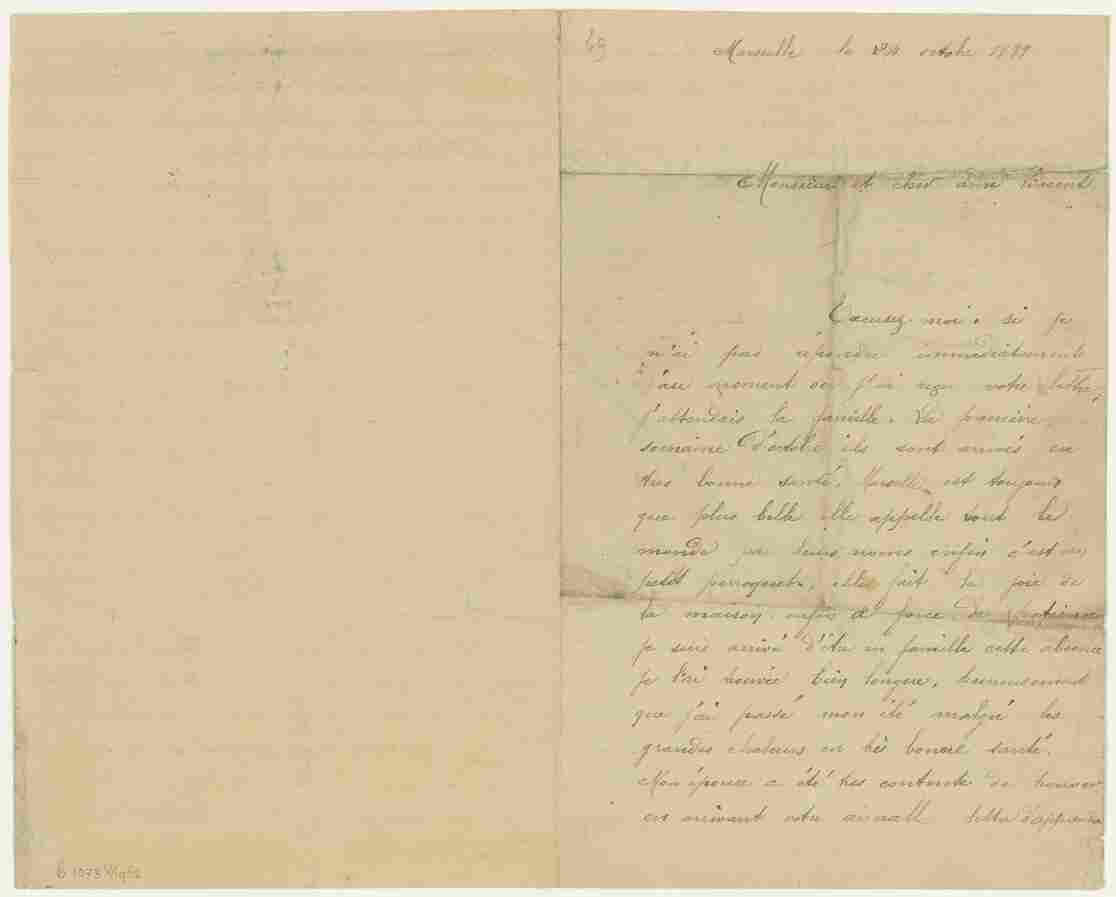 69
Marseille le 24 octobre 1889
Monsieur et cher ami Vincent
Excusez moi. si je
n'ai pas répondu immédiatement
moment ou j'ai reçu votre lettre,
j'attendais la famille. La première
semaine d'octobre ils sont arrivés en
tres bonne santé. Marcelle est toujours
que plus belle elle appelle tout le
monde par leurs noms enfin c'est un
petit perroquet, elle fait la joie de
la maison. enfin a force de patience
je suis arrivé d'être en famille cette absence
je l'ai trouvée bien longue, heureusement
que j'ai passé mon été malgré les
grandes chaleurs en très bonne santé.
Mon épouse a été tres contente de trouver
en arrivant votre lettre d'apprendre
b 1073 V/1962